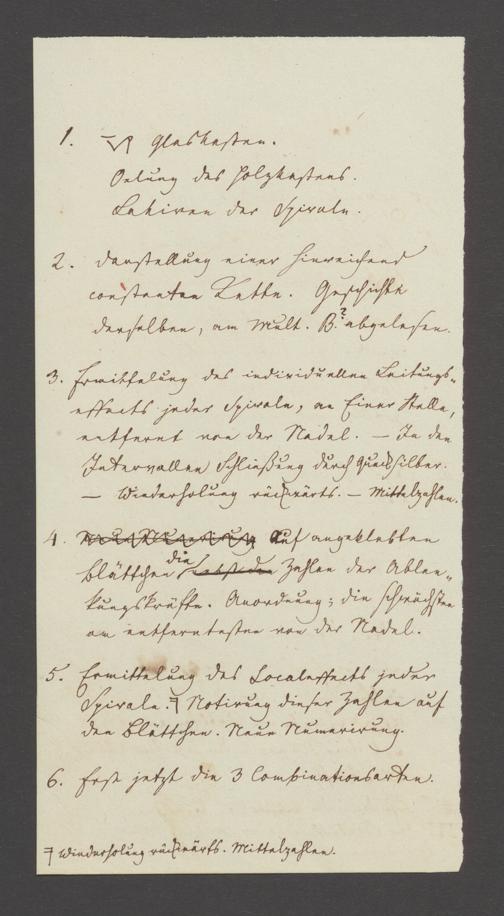 1. Glaskasten.
Oelung des Holzkastens.
Lakiren der Spiralen.
2. Darstellung einer hinreichend
constanten Kette. Geschichte
derselben, am Mult. B.? abgelesen.
3. Ermittelung des individuellen Leitungs-
effects jeder Spirale, an Einer Stelle,
entfernt von der Nadel. — In den
Intervallen Schließung durch Quecksilber.
— Wiederholung rückwärts. — Mittelzahlen.
4. Neue Numerirung Auf angeklebten
Blättchen die Zahlen der Ablen-
kungskräfte. Anordnung; die schwächsten
am entferntesten von der Nadel.
5. Ermittelung des Localeffects jeder
Spirale. Notirung dieser Zahlen auf
den Blättchen. Neue Numerirung.
6. Erst jetzt die 3 Combinationsarten.
Wiederholung rückwärts. Mittelzahlen.